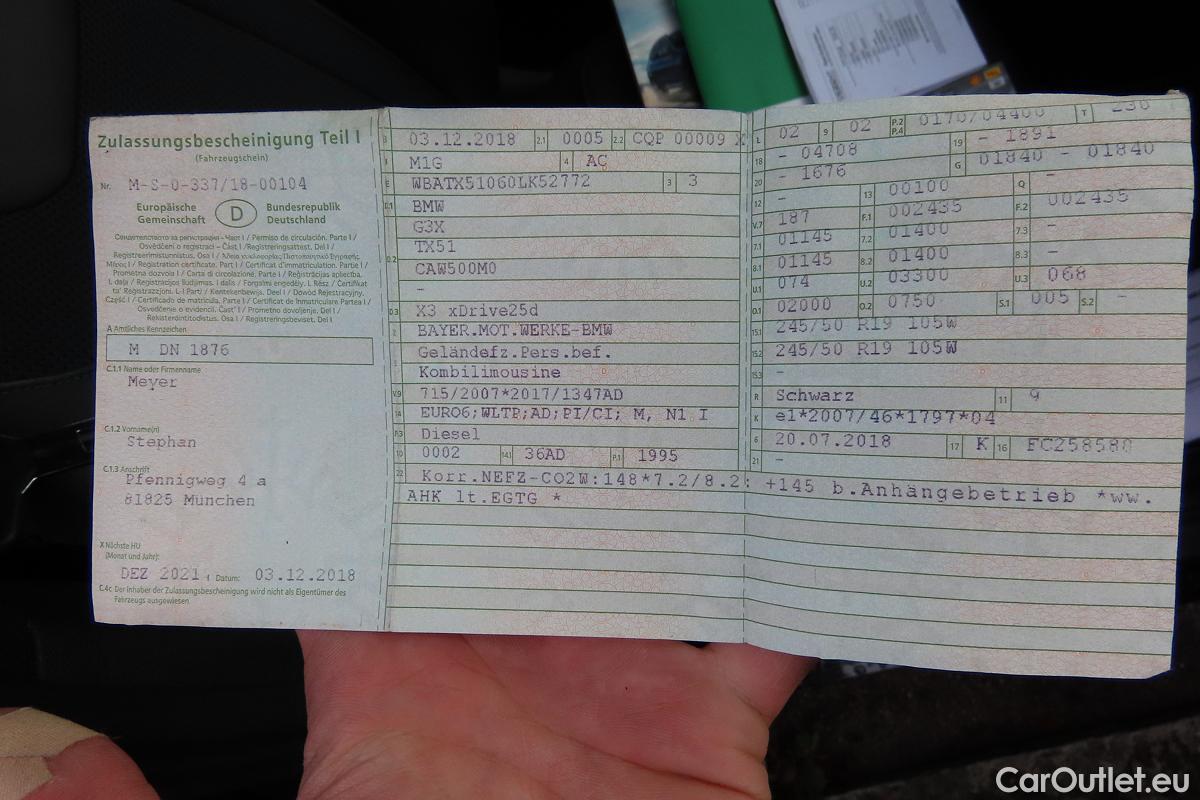 Zulassungsbescheinigung Teil I
(Fahrzeugschein)
Nr. M-S-0-337/18-00104
Europäische Gemeinschaft D Bundesrepublik Deutschland
Свидетелство за регистрация - Част I / Permiso de circulación. Parte I /
Osvědčení o registraci - Část I / Registreringsattest. Del I /
Registreerimistunnistus. Osa I / Άδεια κυκλοφορίας Πιστοποιητικό Εγγραφής.
Μέρος I / Registration certificate. Part I / Certificat d'immatriculation. Partie I /
Prometna dozvola I / Carta di circolazione. Parte I / Reģistrācijas apliecība.
I. daļa / Registracijos liudijimas. I dalis / Forgalmi engedély. I. Rész / Ċertifikat
ta' Reġistrazzjoni. L-I Parti / Kentekenbewijs. Deel I / Dowód Rejestracyjny.
Część I / Certificado de matrícula. Parte I / Certificat de înmatriculare Partea I /
Osvedčenie o evidencii. Časť I / Prometno dovoljenje. Del I /
Rekisteröintitodistus. Osa I / Registreringsbeviset. Del I
A Amtliches Kennzeichen
M DN 1876
C.1.1 Name oder Firmenname
Meyer
C.1.2 Vorname(n)
Stephan
C.1.3 Anschrift
Pfennigweg 4 a
81825 München
X Nächste HU
(Monat und Jahr):
DEZ 2021 I Datum: 03.12.2018
C.4c Der Inhaber der Zulassungsbescheinigung wird nicht als Eigentümer des
Fahrzeugs ausgewiesen.
B 03.12.2018 2.1 0005 2.2 CQP 00009 X
J M1G 4 AC
E WBATX51060LK52772 3 3
D.1 BMW
G3X
TX51
D.2 CAW500M0
-
D.3 X3 xDrive25d
2 BAYER.MOT.WERKE-BMW
5 Geländefz.Pers.bef.
Kombilimousine
V.9 715/2007*2017/1347AD
14 EURO6;WLTP;AD;PI/CI; M, N1 I
P.3 Diesel
10 0002 14.1 36AD P.1 1995
22 Korr.NEFZ-CO2W:148*7.2/8.2: +145 b.Anhängebetrieb *ww.
AHK lt.EGTG *
L 02 9 02 P.2 P.4 0170/04400 T 230
18 - 04708 19 - 1891
20 - 1676 G 01840 - 01840
12 - 13 00100 Q -
V.7 187 F.1 002435 F.2 002435
7.1 01145 7.2 01400 7.3 -
8.1 01145 8.2 01400 8.3 -
U.1 074 U.2 03300 U.3 068
O.1 02000 O.2 0750 S.1 005 S.2 -
15.1 245/50 R19 105W
15.2 245/50 R19 105W
15.3 -
R Schwarz 11 9
K e1*2007/46*1797*04
6 20.07.2018 17 K 16 FC258580
21 -
CarOutlet.eu